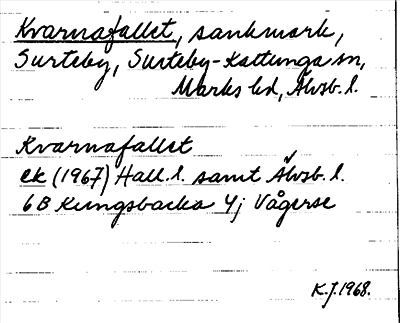 Kvarnafallet, sankmark,
Surteby, Surteby-Kattunga sn,
Marks hd, Älvsb. l.
Kvarnafallet
ek (1967) Hall. l. samt Älvsb. l.
6B Kungsbacka 4j Vågerse
K.J. 1968.